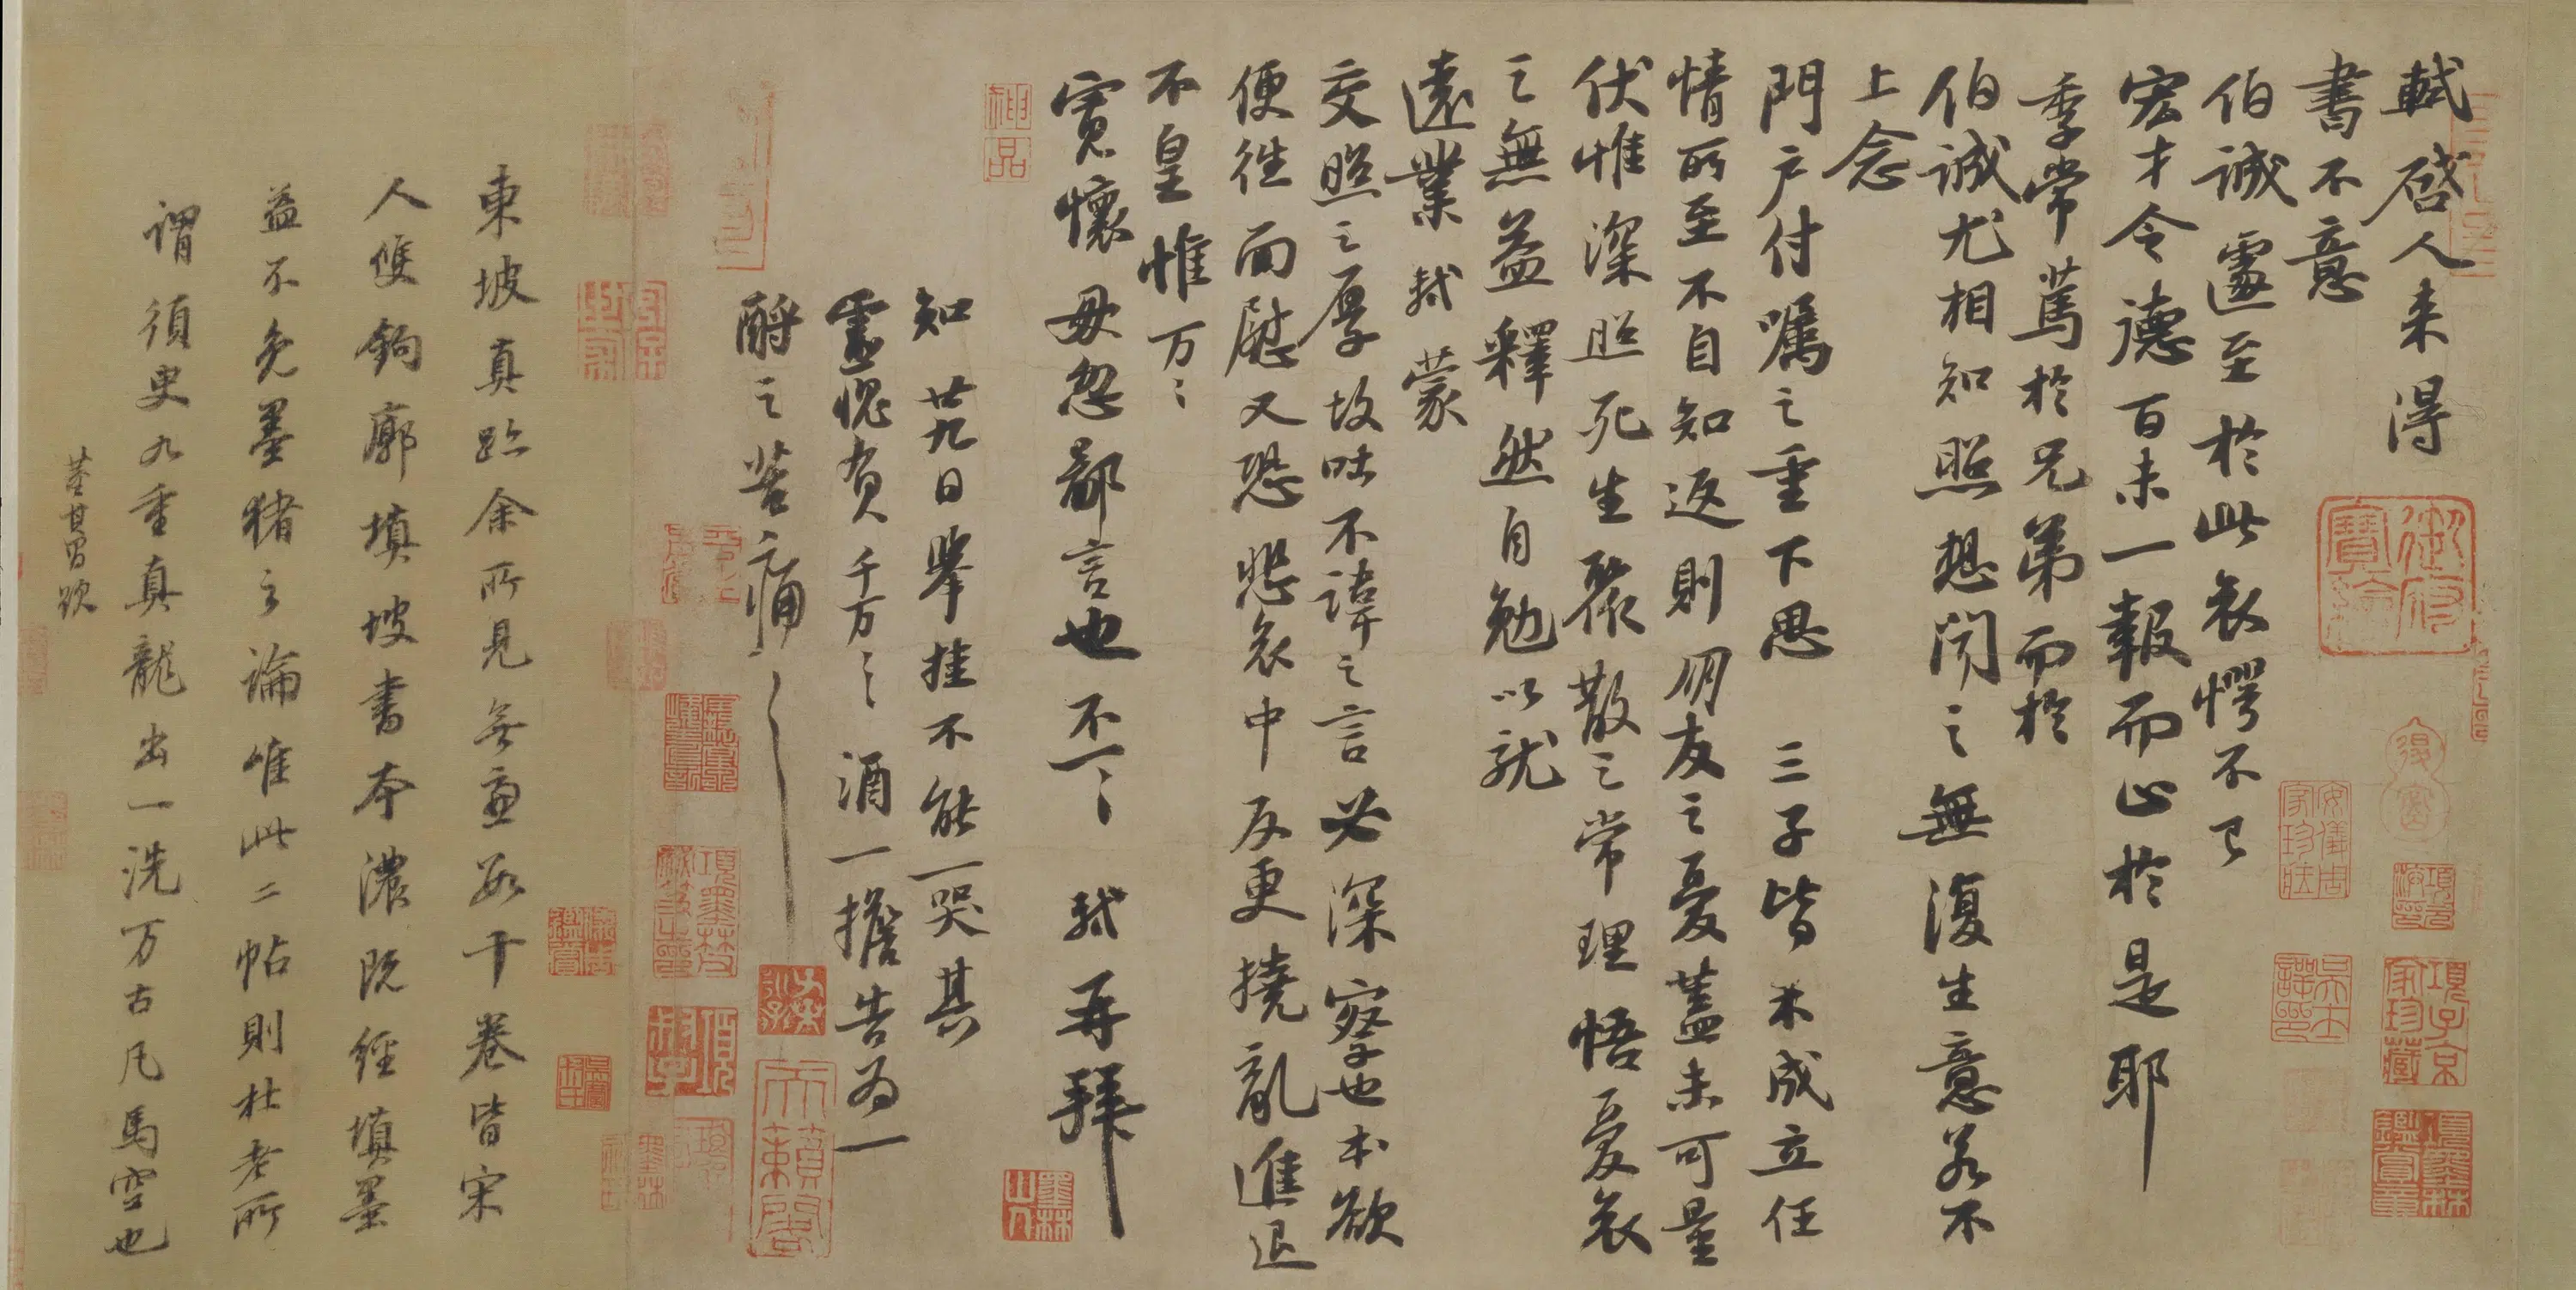 軾啓人来得
書不意
伯誠遽至於此哀愕不已
宏才令德百未一報而止於是耶
季常篤於兄弟而於
伯誠尤相知照想聞之無復生意若不
上念
門户付囑之重下思三子皆未成立任
情所至不自知返則朋友之憂蓋未可量
伏惟深照死生聚散之常理悟憂哀
之無益釋然自勉以就
遠業軾蒙
交照之厚故吐不諱之言必深察也本欲
便往面慰又恐悲哀中反更撓亂進退
不皇惟万々
寬懷毋忽鄙言也不一々軾再拜
知廿九日舉挂不能一哭其
靈愧負千万々酒一擔告為一
酹之苦痛々
神品
墨林山人
天籟閣
項子京家珍藏
東坡真跡余所見無慮數十卷皆宋
人雙鉤廓填坡書本濃既經填墨
益不免墨猪之論唯此二帖則杜老所
謂須臾九重真龍出一洗万古凡馬空也
董其昌跋